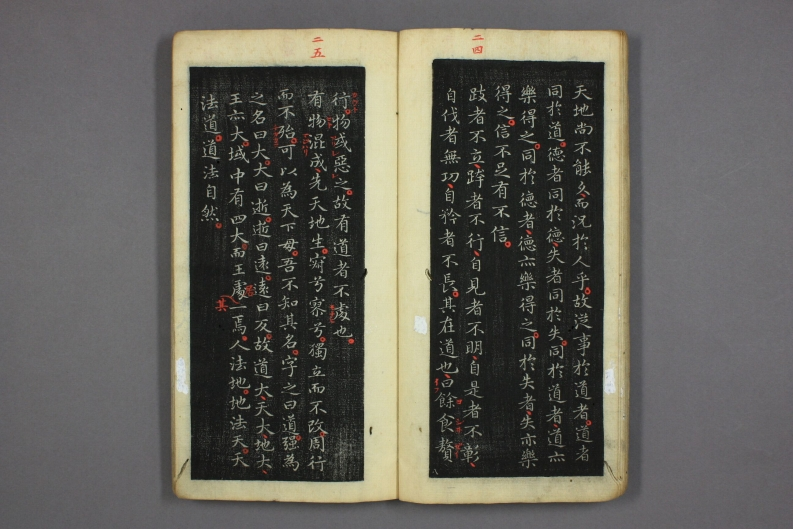 二四
天地尚不能久而況於人乎故從事於道者道者
同於道德者同於德失者同於失同於道者道亦
樂得之同於德者德亦樂得之同於失者失亦樂
得之信不足有不信
跂者不立跨者不行自見者不明自是者不彰
自伐者無功自矜者不長其在道也曰餘食贅
二五
行物或惡之故有道者不處也
有物混成先天地生寂兮寥兮獨立而不改周行
而不殆可以為天下母吾不知其名字之曰道強為
之名曰大大曰逝逝曰遠遠曰反故道大天大地大
王亦大域中有四大而王處一焉人法地地法天天
其
法道道法自然